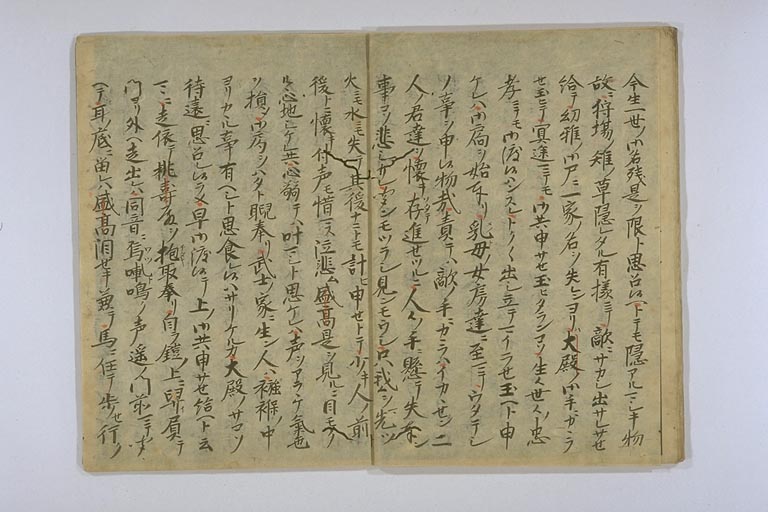 今生一世ノ御名残是ヲ限ト思召セトテモ隠アルマシキ物
故ニ狩場ノ雉ノ草隠レタル有様ニテ敵ニサカシ出サレサセ
給テ幼稚ノ御尸ニ一家ノ名ヲ失ンヨリハ大殿ノ御手ニカヽラ
セ玉ヒテ冥途ニテモ御共申サセ玉ヒタランコソ生々世々ノ忠
孝ニテモ御渡候ハンスレトク〳〵出シ立テマイラセ玉ヘト申
ケレハ御局ヲ始奉リ乳母ノ女房達ニ至マテウタテシ
ノ事ヲ申候物哉責テハ敵ノ手ニカヽラハイカヽセン二
人ノ君達ヲ懐キ存進セツル人々ノ手ニ懸テ失奉ン
事コソ悲シケレ只我ヲ先ツ
火ニモ水ニモ失テ其後ナニトモ計ヒ申セトテ少キ人ノ前
後ト懐付声モ惜マス泣悲ム盛高是ヲ見ルニ目モクレ
心地シケレ共心弱テハ叶マシト思ケレハ声ヲアラヽケ気色
ヲ損シ御局ヲハタト睨奉リ武士ノ家ニ生ン人ハ襁褓ノ中
ヨリカヽル事有ヘシト思食レ候ハサリケルカ大殿ノサコソ
待遠ニ思召レ候ラメ早御渡候テ上ノ御共申サセ給ヘト云
マヽニ走依テ亀寿殿ヲ抱取奉リ自ラ鎧ノ上ニ舁負テ
門ヨリ外ヘ走出レハ同音ニ焉𠵅鳴ノ声遥ノ門前ニマテ
ヘテ耳ノ底ニ留レハ盛高泪セキ兼テ馬ニ任テ歩セ行ク